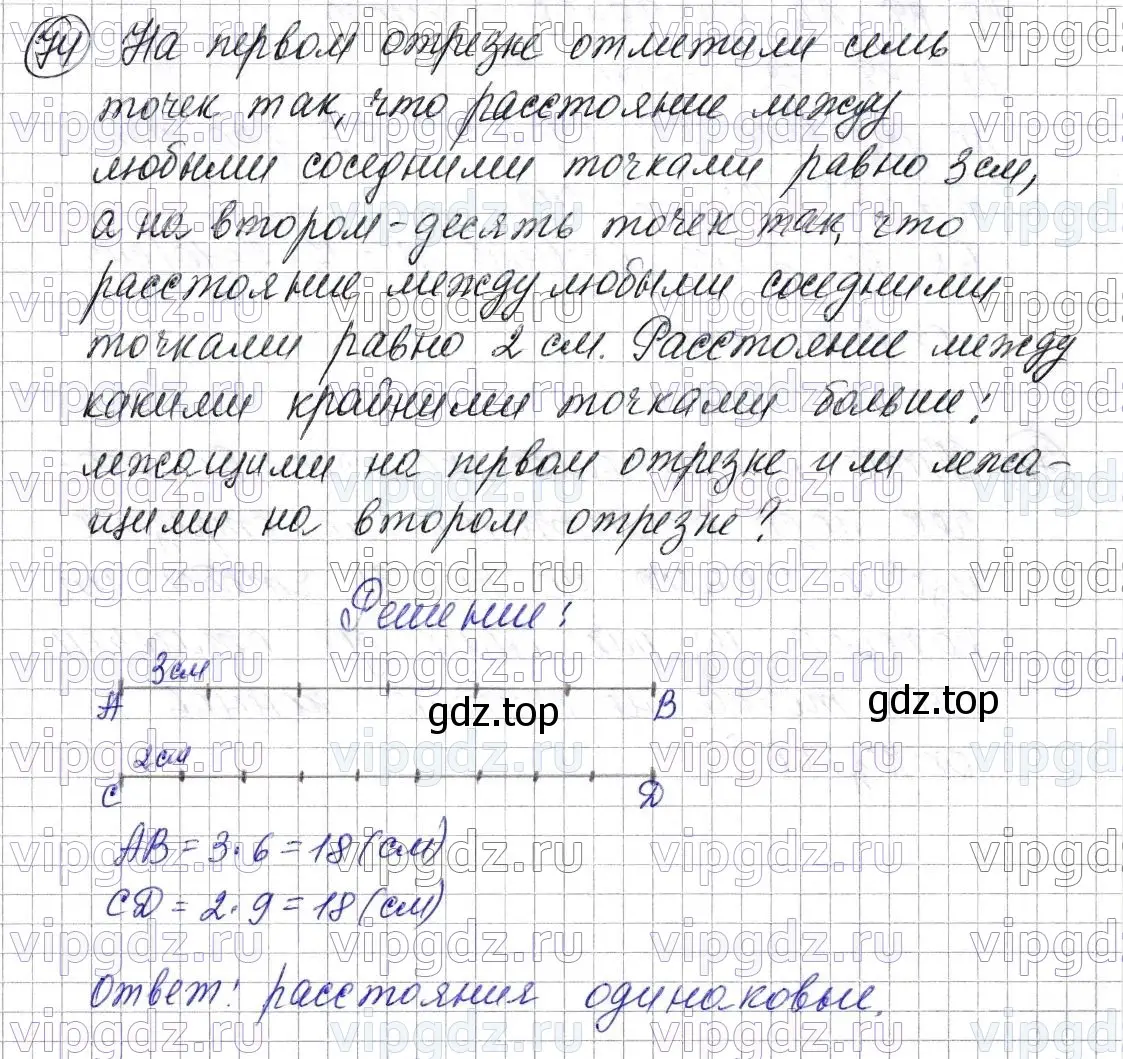 74 На первом отрезке отметили семь
точек так, что расстояние между
любыми соседними точками равно 3 см,
а на втором - десять точек так, что
расстояние между любыми соседними
точками равно 2 см. Расстояние между
какими крайними точками больше:
лежащими на первом отрезке или лежа-
щими на втором отрезке?
Решение:
3 см
A B
gdz.top gdz.top
2 см
C D
AB = 3 · 6 = 18 (см)
CD = 2 · 9 = 18 (см)
Ответ: расстояния одинаковые.
vipgdz.ru